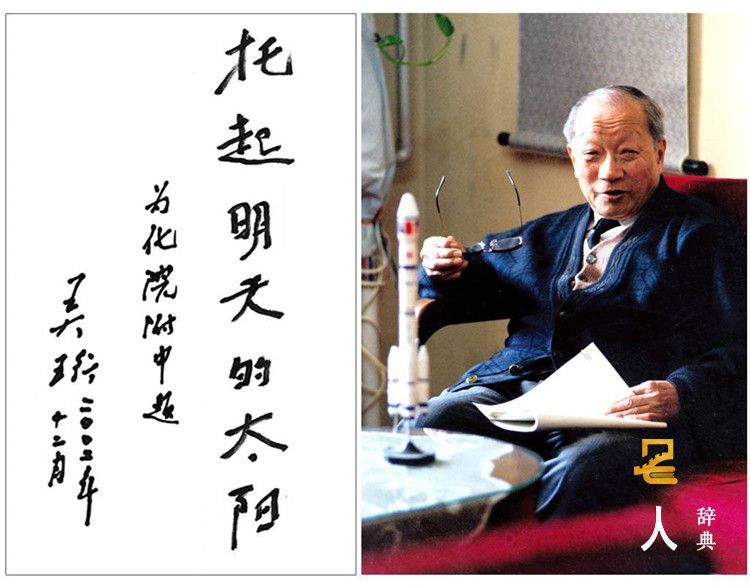 托起明天的太阳
为化院附中题
王大珩 二〇〇二年
十二月
人
辞典